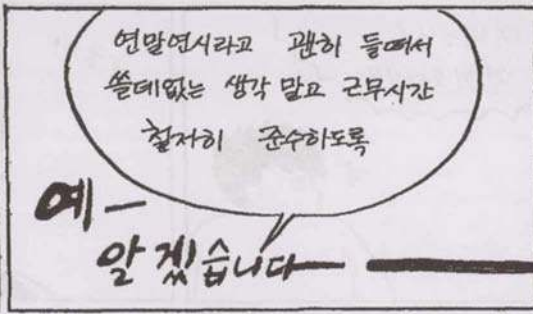 연말연시라고 괜히 들떠서
쓸데없는 생각 말고 근무시간
철저히 준수하도록
예—
알겠습니다—